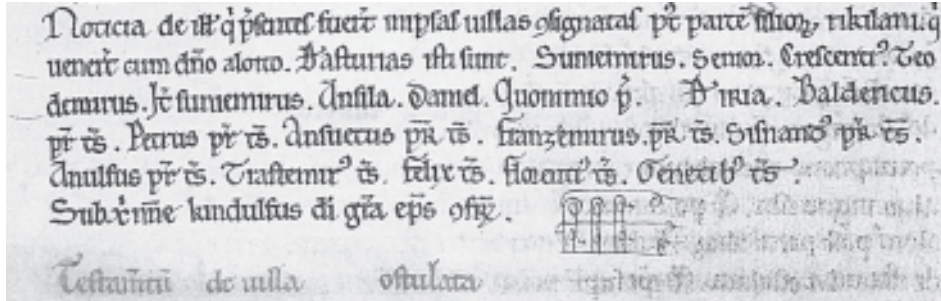 Noticia de ill' q̇ p̃sentes fuer̃t in ipsas uillas ↄsignatas pt̃ parte filioꝝ rikilani. q̇
uener̃t cum dño aloito. D'asturias isti sunt. Suniemirus. Senior. Crescentꝰ. Teo
demirus. It̃ suniemirus. Ansila. Daniel. Quonimio p̃. D'iria. Baldericus.
pr̃ ts̃. Petrus pr̃ ts̃. Ansuetus pr̃ ts̃. franzemirus. pr̃ ts̃. Sisnandꝰ pr̃ ts̃.
Anulfus pr̃ ts̃. Trastemirꝰ ts̃. felix ts̃. florentꝰ ts̃. Genetibꝰ ts̃
Sub xp̃i nñe kindulfus di gr̃a ep̃s ↄfir̃.
Testam̃tũ de uilla ostulata